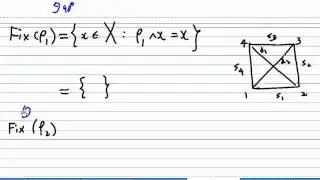 Fix(ρ₁) = {x ∈ X : ρ₁ ∧ x = x}
= { }
Fix (ρ₂)
4 s₃ 3
d₁ d₂
s₄ s₂
1 s₁ 2